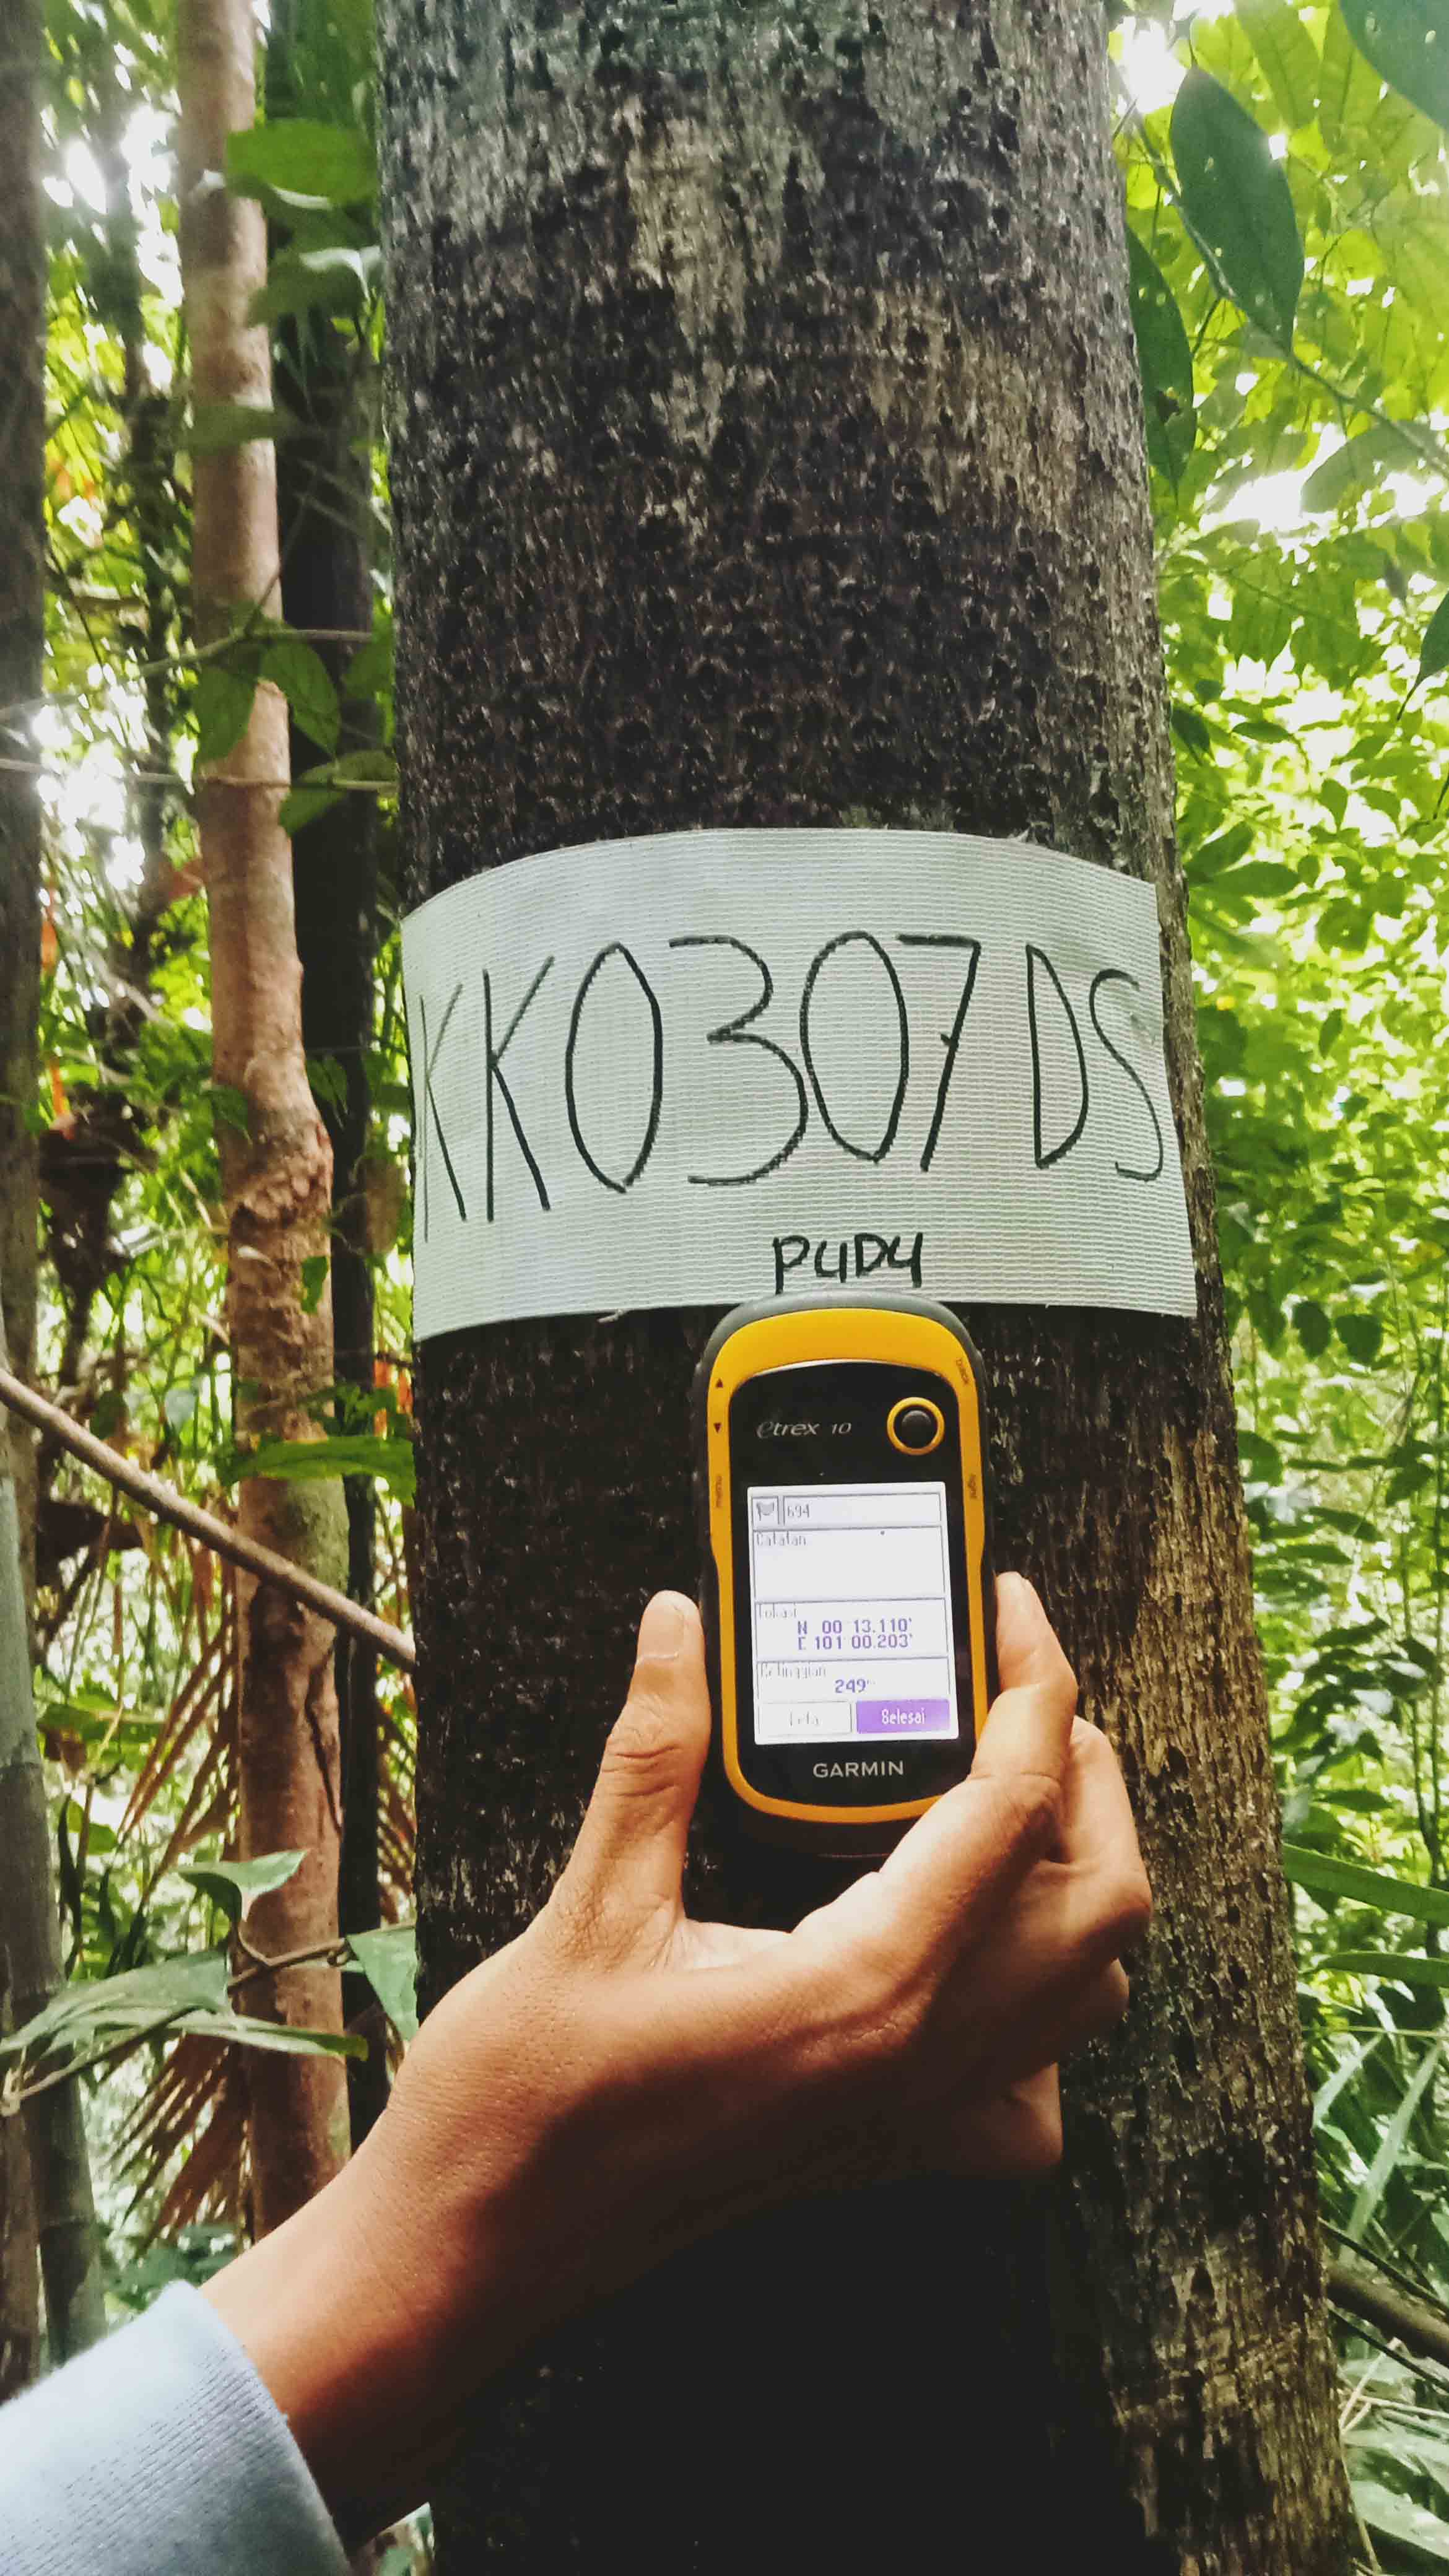 KK0307DS
P4D4
etrex 10
menu
light
694
Catatan
Lokasi
N 00 13.110'
E 101 00.203'
Ketinggian
249
Peta
Selesai
GARMIN